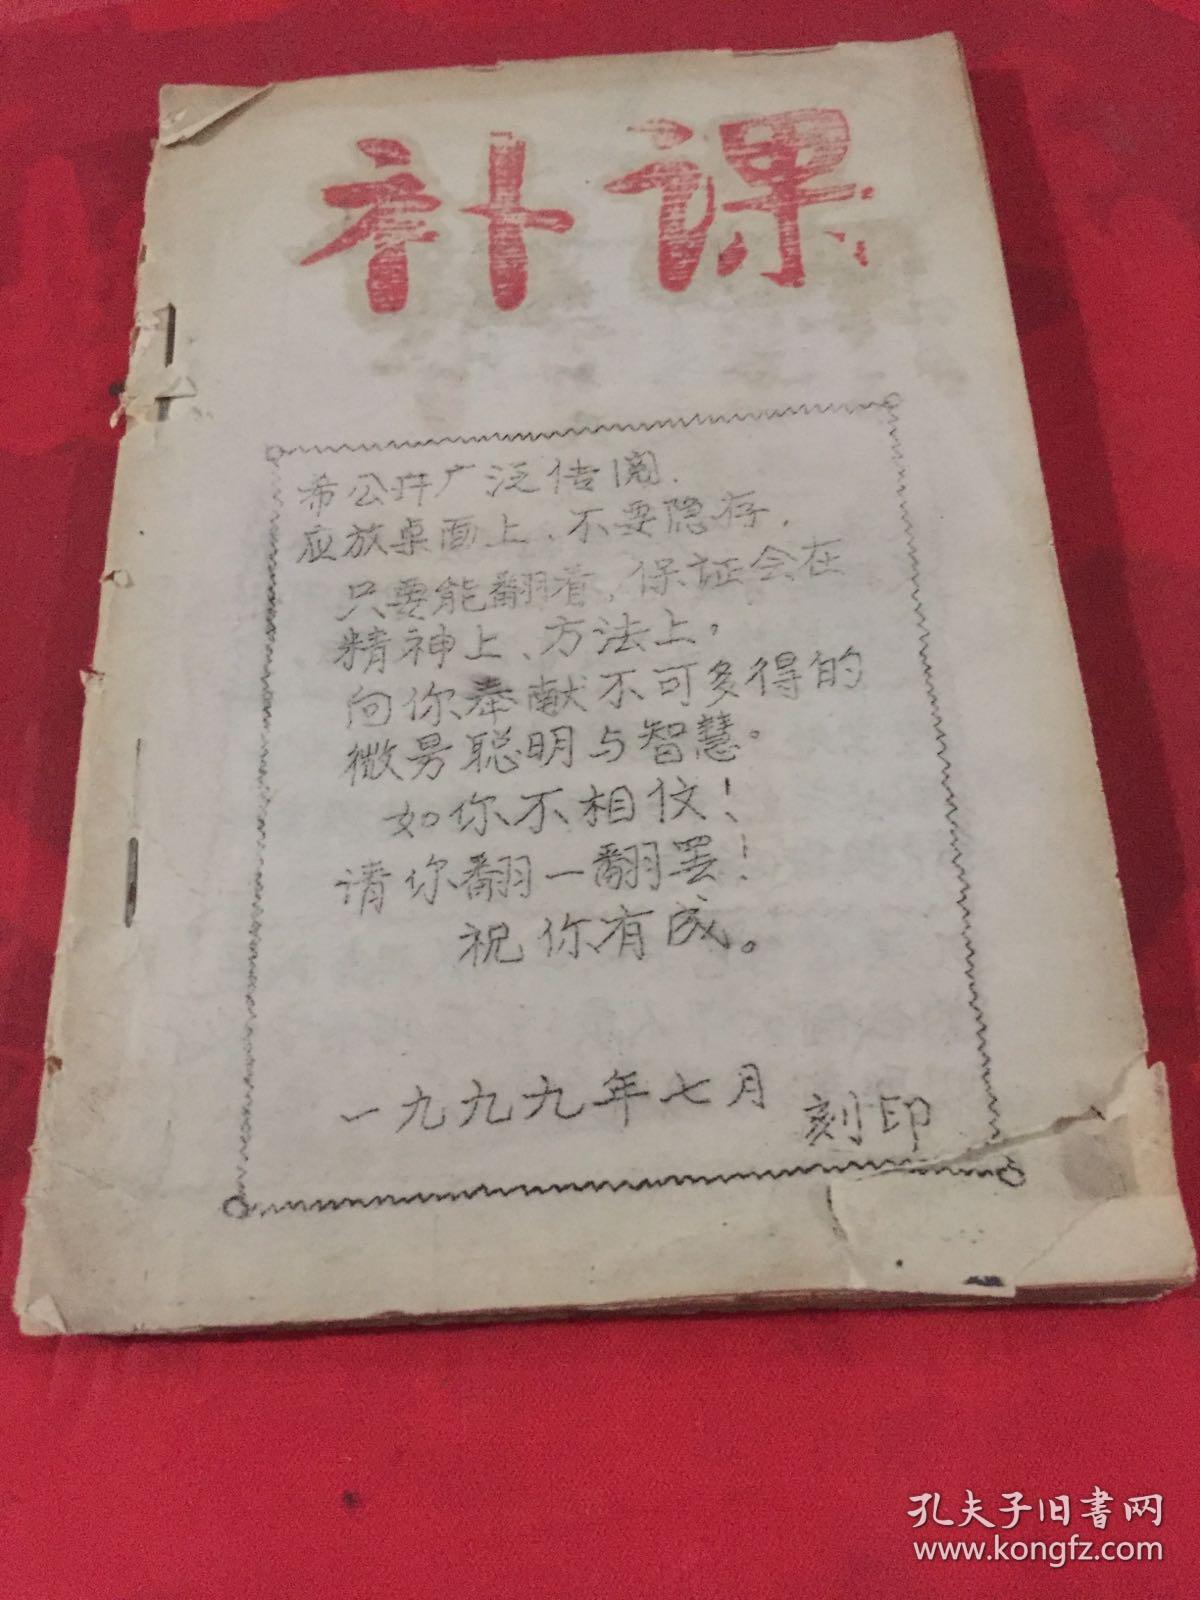 补课
希公开广泛传阅.
应放桌面上、不要隐存.
只要能翻看，保证会在
精神上、方法上，
向你奉献不可多得的
微另聪明与智慧。
如你不相仪！
请你翻一翻罢！
祝你有成。
一九九九年七月 刻印
孔夫子旧书网
www.kongfz.com